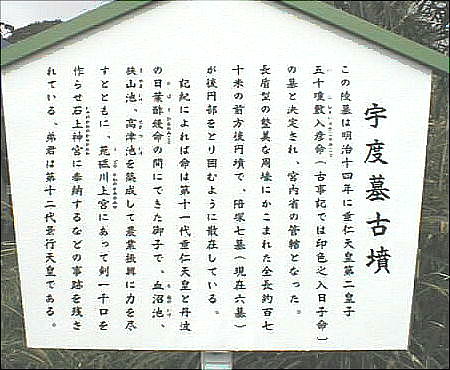 宇度墓古墳
この陵墓は明治十四年に垂仁天皇第二皇子
五十瓊敷入彦命（古事記では印色之入日子命）
の墓と決定され、宮内省の管轄となった。
長盾型の整美な周壕にかこまれた全長約百七
十米の前方後円墳で、陪塚七基（現在六基）
が後円部をとり囲むように散在している。
記紀によれば命は第十一代垂仁天皇と丹波
の日葉酢媛命の間にできた御子で、血沼池、
狭山池、高津池を築成して農業振興に力を尽
すとともに、菟砥川上宮にあって剣一千口を
作らせ石上神宮に奉納するなどの事跡を残さ
れている。弟君は第十二代景行天皇である。